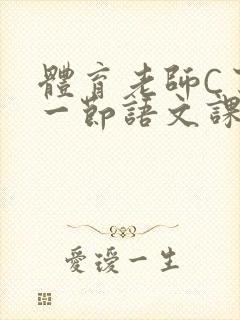 體育老師C了
一節語文課
愛璦一生